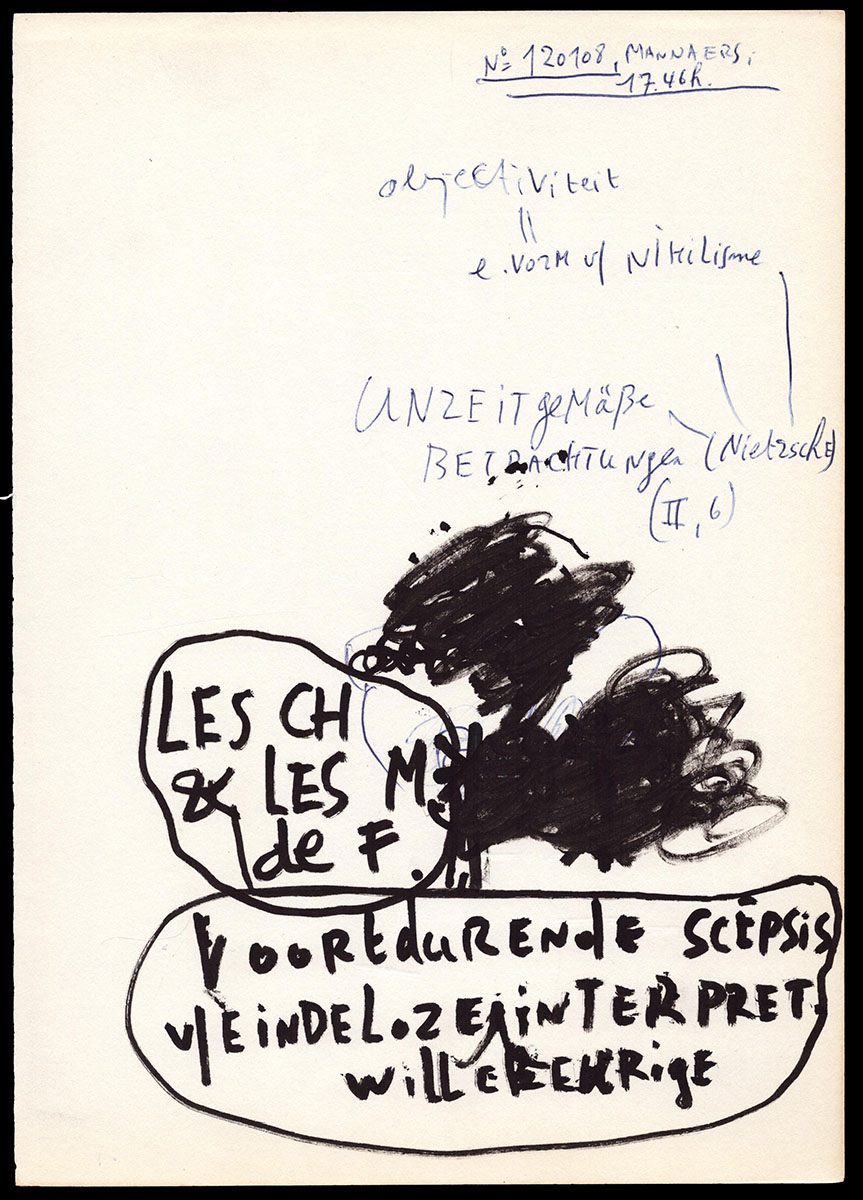 Nº 120108, MANNAERS,
17.46h.
objectiviteit
=
e. VORM v/ NIHILISME
UNZEITgeMÄßE
BETRACHTUNgen (NietzschE)
(II, 6)
LES CH
& LES M.
de F.
VOORtduRENdE SCEPSIS
v/EiNDELOZE iNTERPRET.
willEKEURigE